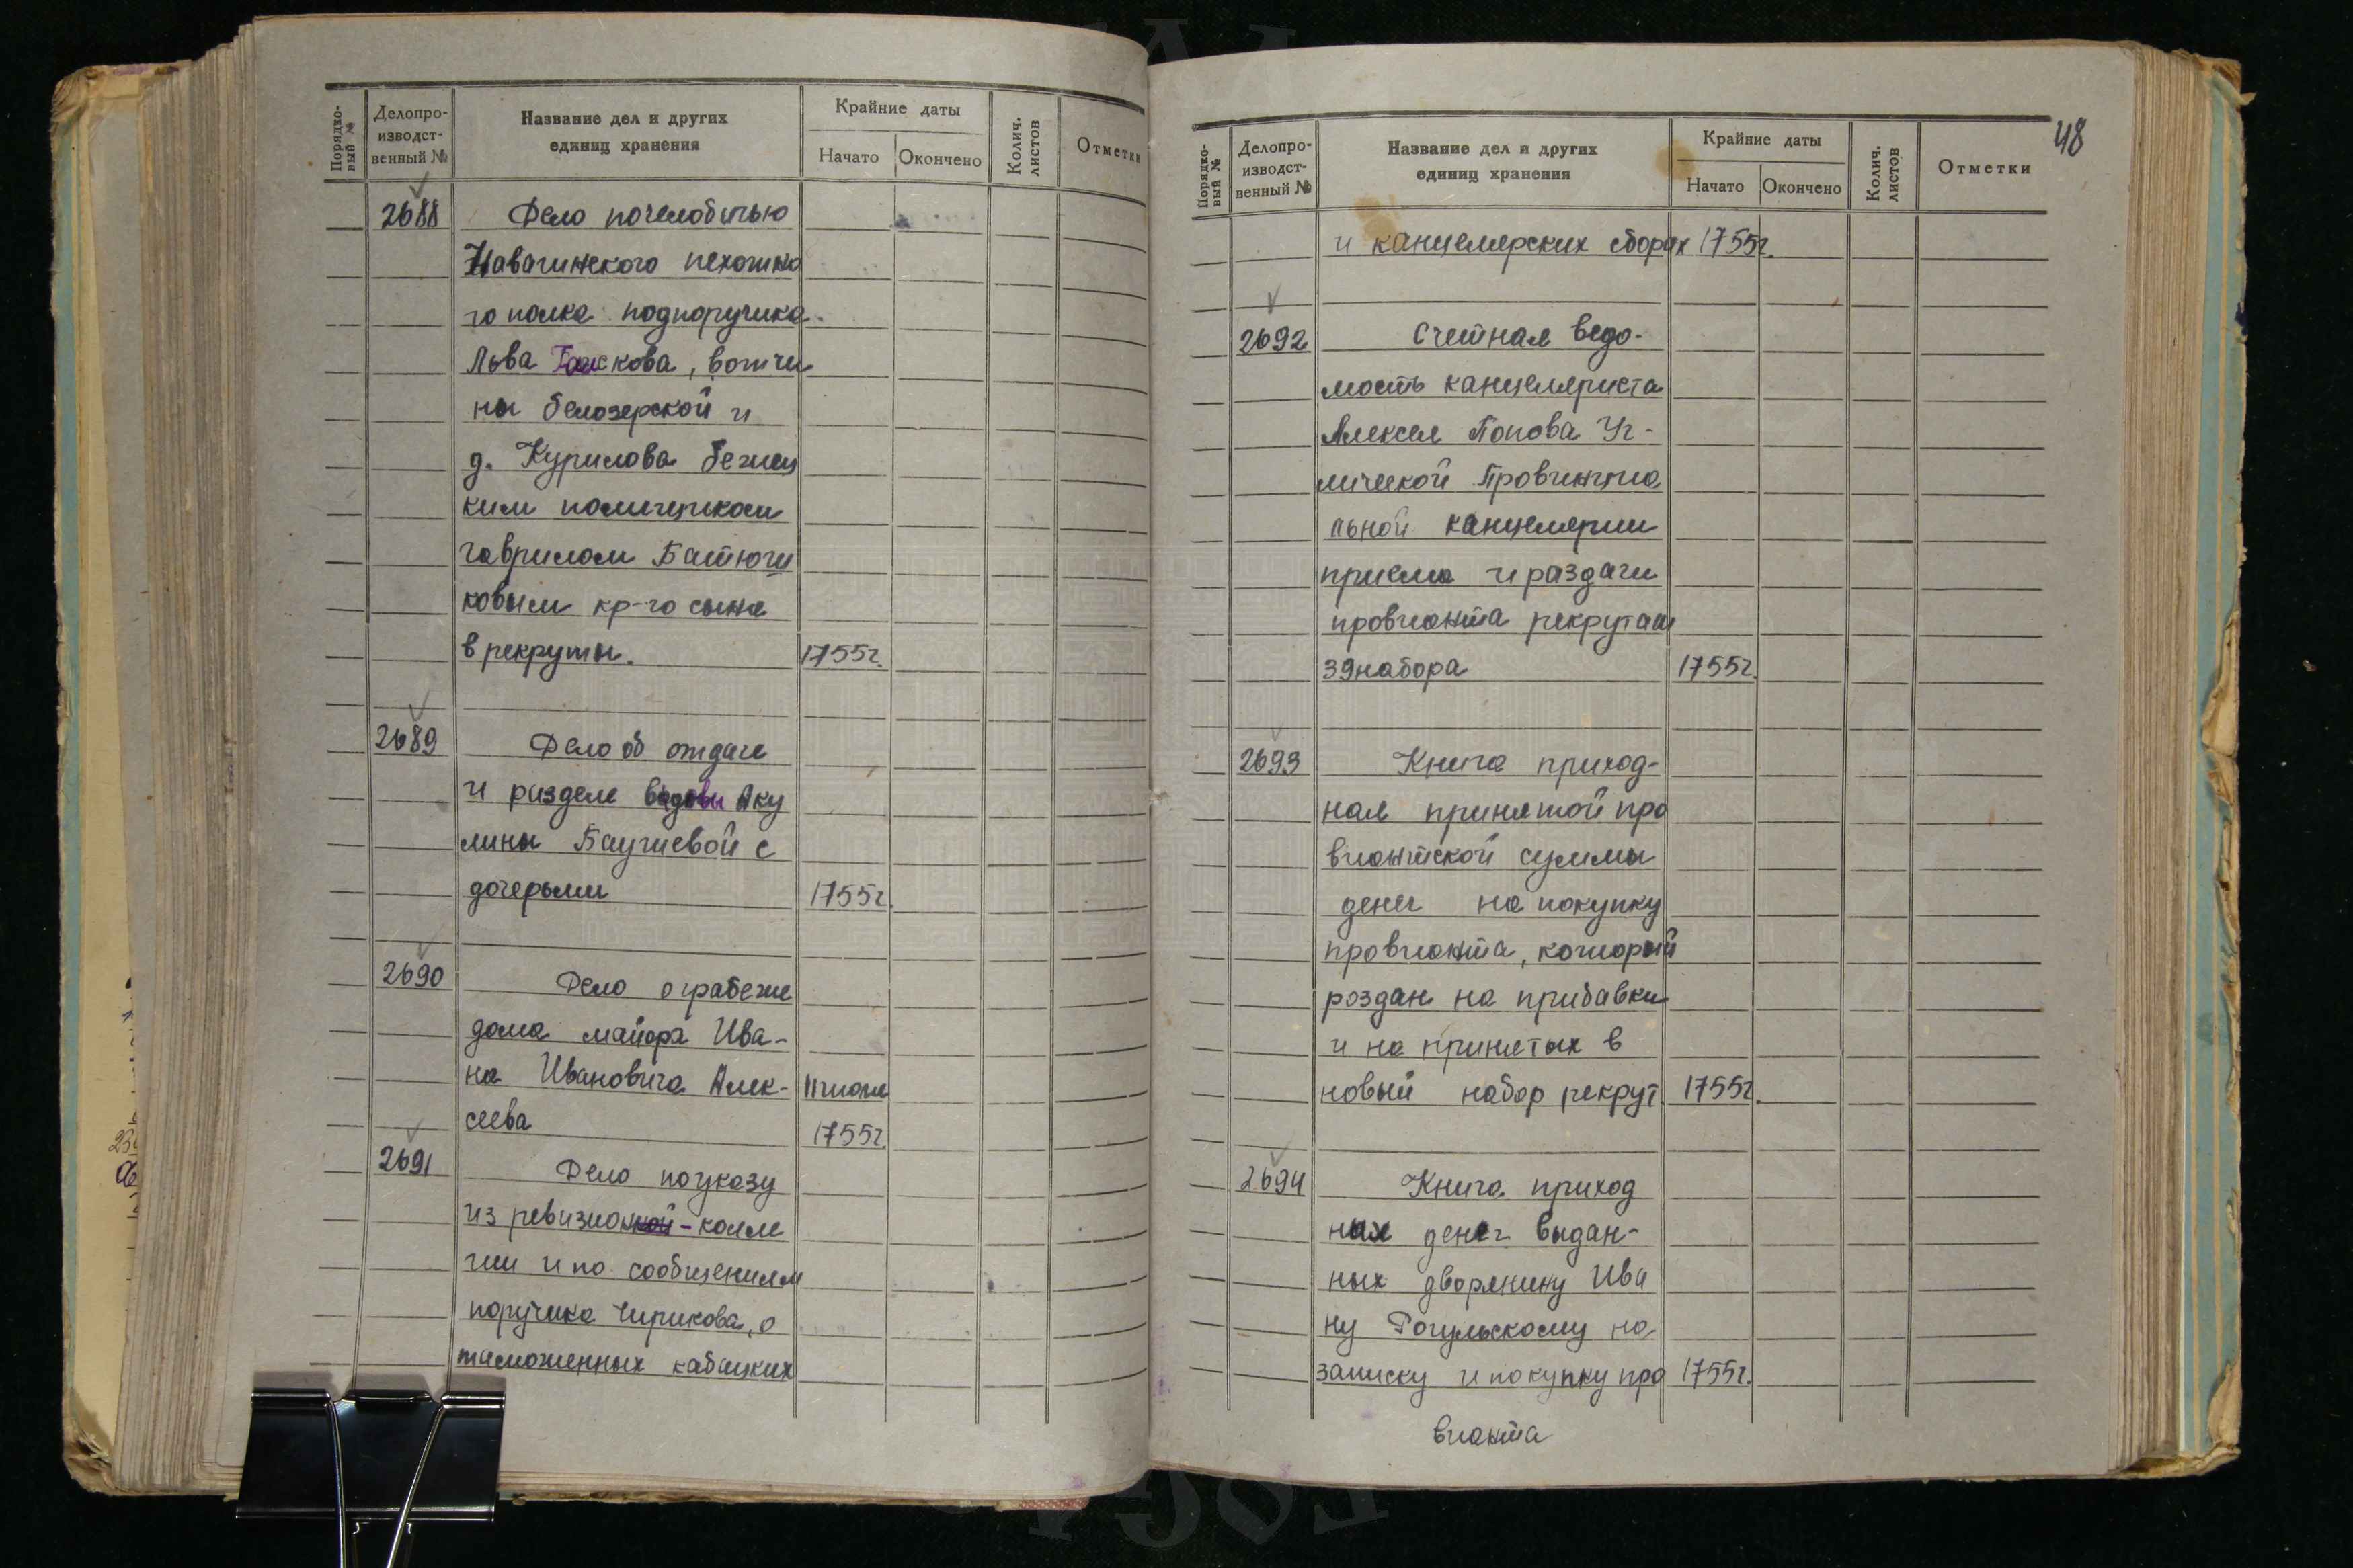 Порядко-
вый №
Делопро-
изводст-
венный №
Название дел и других
единиц хранения
Крайние даты
Начато
Окончено
Колич.
листов
Отметки
2688
Дело почелобитью
Навагинского пехотно
го полка подпоручика
Льва Гаискова, вотчи
ны белозерской и
д. Курилова бежец
ким помещиком
Гаврилом Батюш
ковым кр-го сына
в рекруты. 1755г.
2689
Дело об отдаче
и разделе вдовы Аку
лины Баушевой с
дочерьми 1755г.
2690
Дело о грабеже
дома майора Ива-
на Ивановича Алек-
сеева
11 июля
1755г.
2691
Дело по указу
из ревизион-колле
гии и по сообщениям
поручика Чирикова, о
таможенных кабацких
48
Порядко-
вый №
Делопро-
изводст-
венный №
Название дел и других
единиц хранения
Крайние даты
Начато
Окончено
Колич.
листов
Отметки
и канцелярских сборах 1755г.
2692
Счетная ведо-
мость канцеляриста
Алексея Попова Уг-
лической Провинциа
льной канцелярии
приема и раздачи
провианта рекрутам
39 набора 1755г.
2693
Книга приход-
ная принятой про
виантской суммы
денег на покупку
провианта, который
роздан на прибавки
и на принятых в
новый набор рекрут. 1755г.
2694
Книга приход
ная денег выдан-
ных дворянину Ива
ну Рогульскому на
записку и покупку про 1755г.
вианта